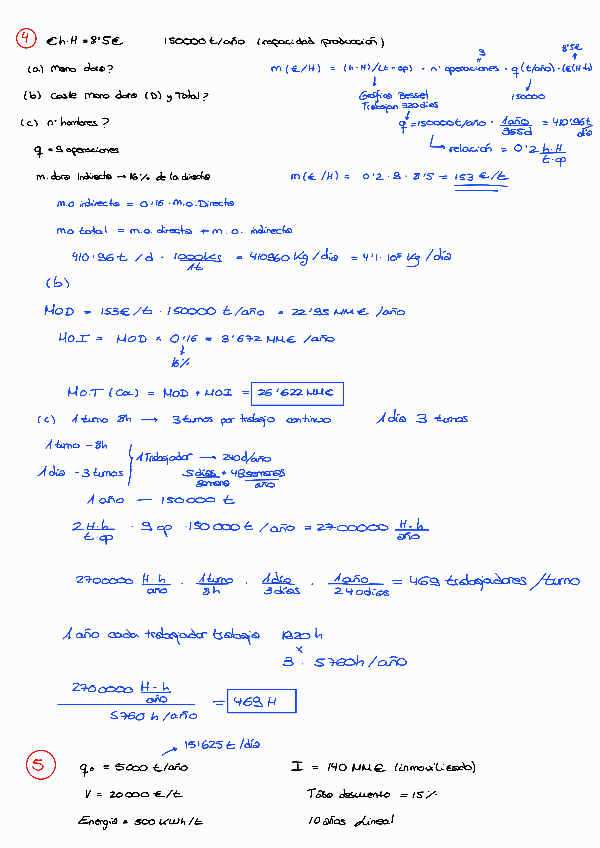 4 € h·H = 8'5€ 150000 t/año (capacidad producción)
(a) mano obra? m (€/H) = (h·H)/(t·op) · nº operaciones · q(t/año) · (€/H·h)
9 8'5€
(b) Coste mano obra (D) y Total? Gráfica Bessel 150000
Trabajan 320 días
(c) nº hombres? q = 150000 t/año · 1 año / 365 d = 410'96 t/día
q = 9 operaciones relación = 0'2 h·H / t·op
m.obra Indirecta → 16% de la directa m (€/H) = 0'2 · 9 · 8'5 = 153 €/t
m.o indirecta = 0'16 · m.o.Directa
mo total = m.o. directa + m.o. indirecta
410'96 t/d · 1000 kg / 1t = 410960 kg/día = 4'1·10⁵ kg/día
(b)
MOD = 153€/t · 150000 t/año = 22'95 MM€/año
MOI = MOD × 0'16 = 3'672 MM€ /año
16%
M.O.T (Ca) = MOD + MOI = 26'622 MM€
(c) 1 turno 8h → 3 turnos por trabajo continuo 1 día 3 turnos
1 turno - 8h
1 Trabajador → 240 d/año
1 día - 3 turnos 5 días / semana · 48 semanas / año
1 año — 150000 t
2 H·h / t·op · 9 op · 150000 t/año = 2700000 H·h / año
2700000 H·h / año · 1 turno / 8h · 1 día / 3 días · 1 año / 240 días = 469 trabajadores /turno
1 año cada trabajador trabaja 1920 h
×
3 · 5760 h/año
2700000 H·h / año / 5760 h/año = 469 H
→ 15'1625 t/día
5 q₀ = 5000 t/año I = 140 MM€ (inmovilizado)
V = 20000 €/t Tasa descuento = 15%
Energía = 500 kWh/t 10 años Lineal